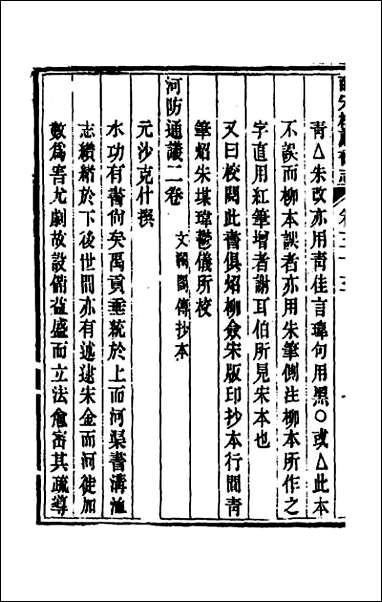 皕宋樓藏書志 卷三十三
青△朱改亦用青佳言瑋句用黑○或△此本
不誤而柳本誤者亦用朱筆側注柳本所作之
字直用紅筆增者謝耳伯所見宋本也
又曰校閱此書俱炤柳僉宋版印抄本行間青
筆炤朱堞瑋鬱儀所校
河防通議二卷 文瀾閣傳抄本
元沙克什撰
水功有書尙矣禹貢垂統於上而河渠書溝洫
志纘緒於下後世間亦有述逮宋金而河徙加
數爲害尤劇故設備益盛而立法愈密其疏導